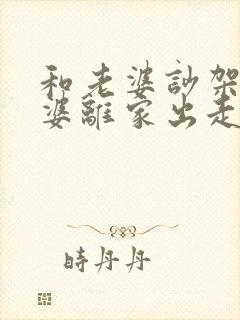 和老婆訮架
婆離家出走
時丹丹